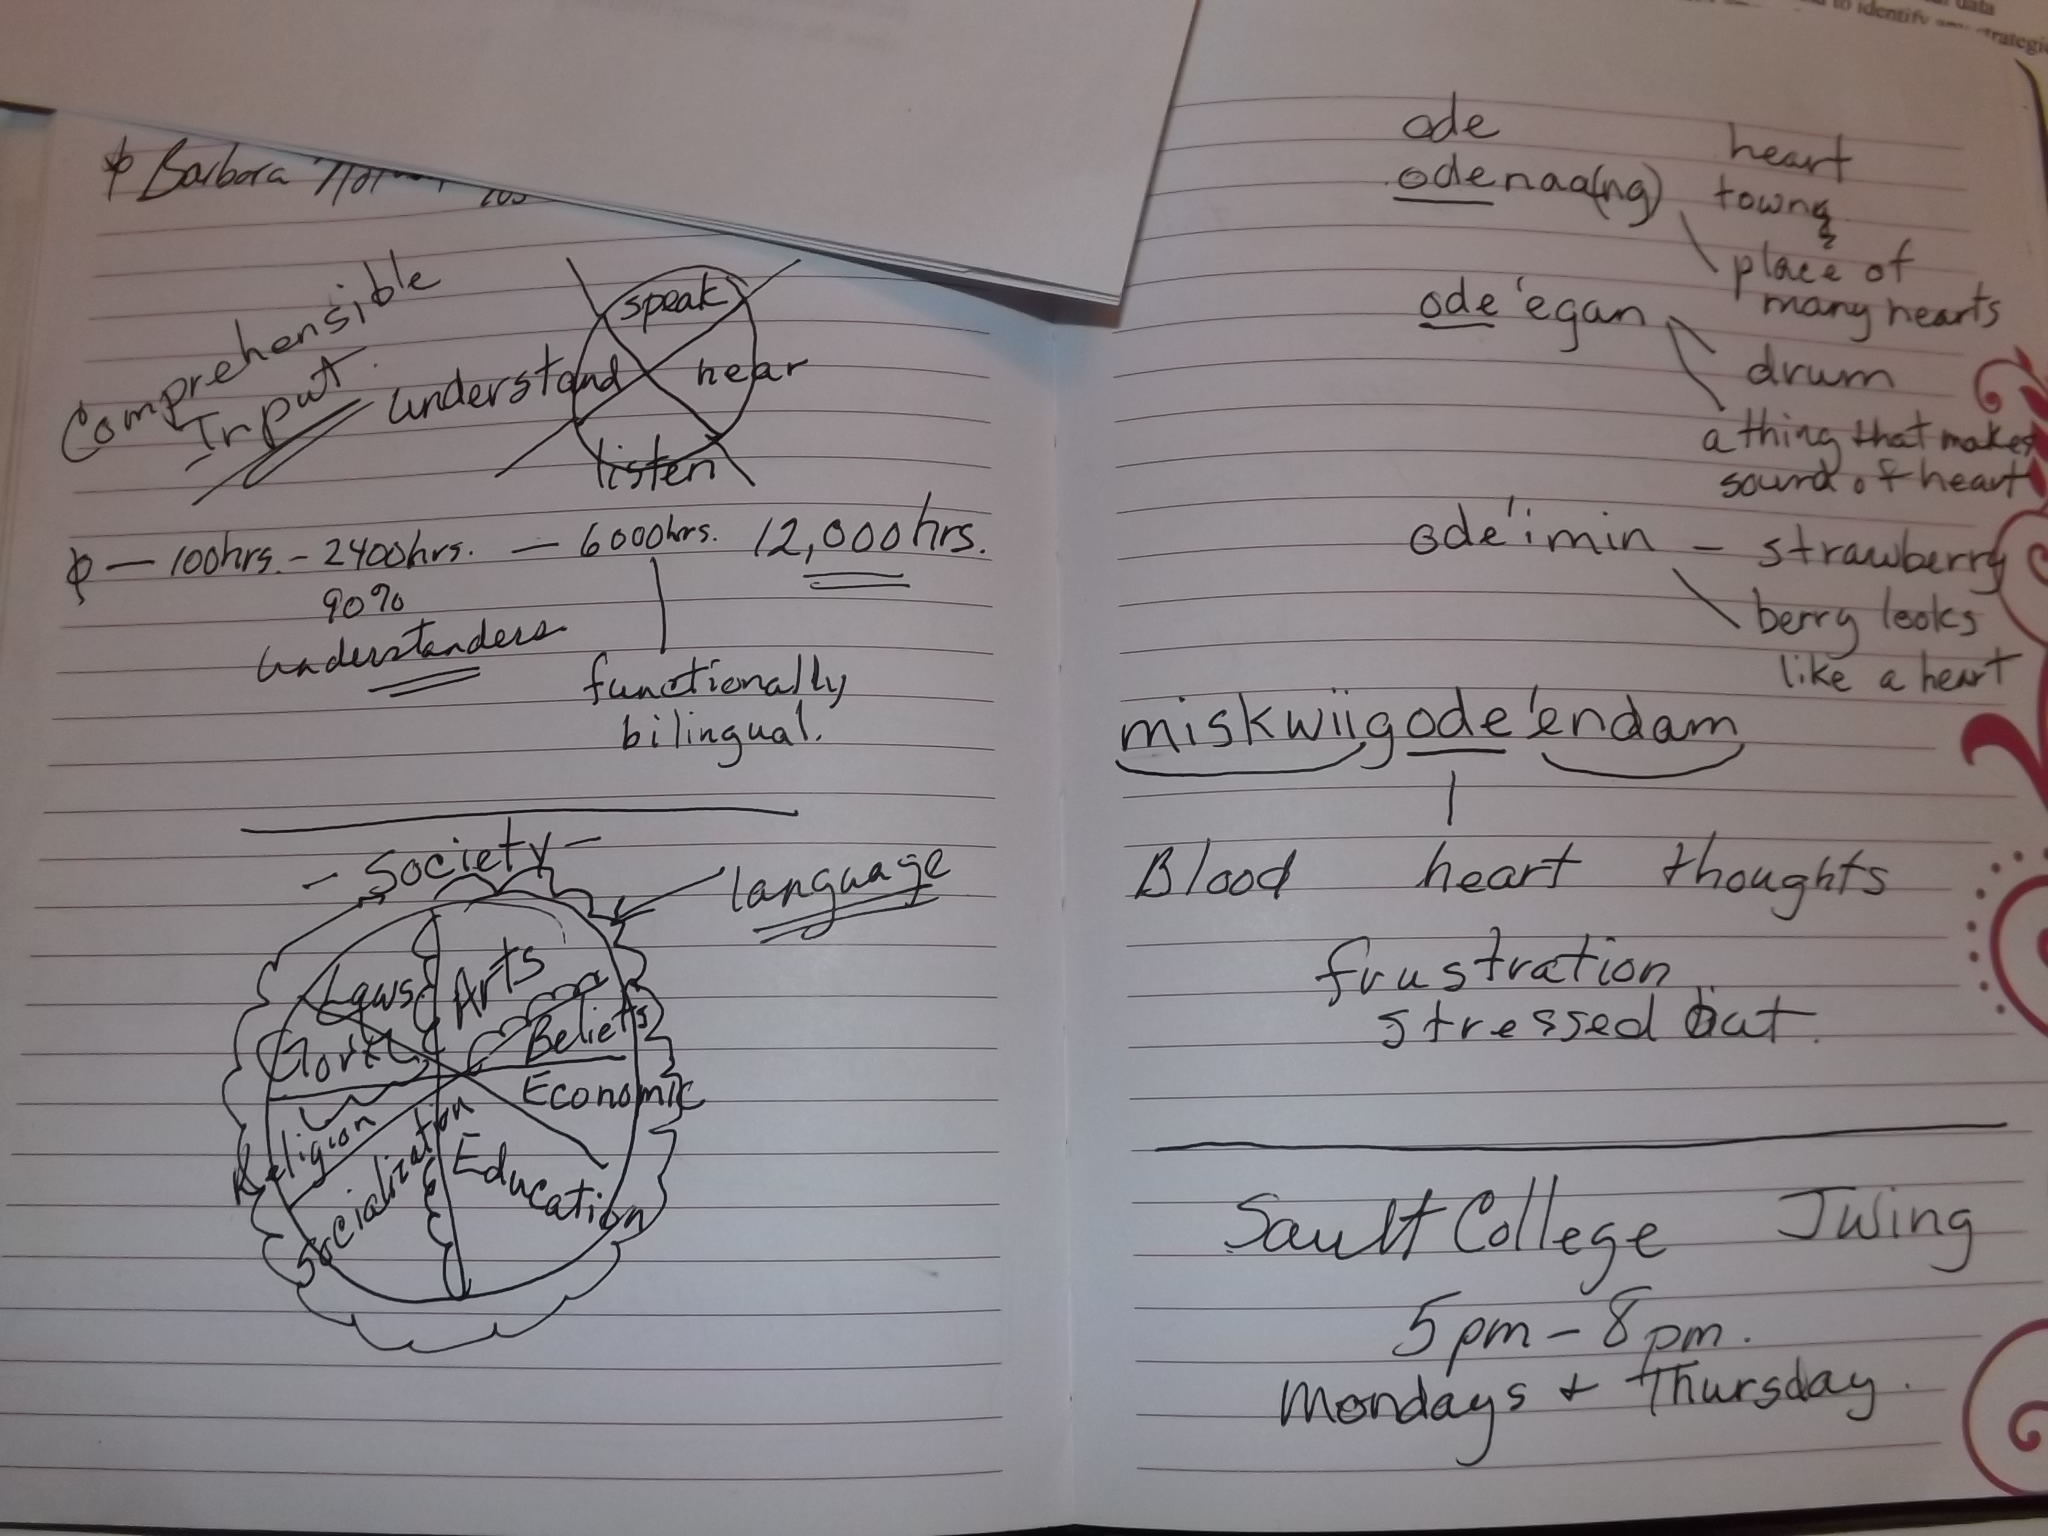 Barbara
Comprehensible
Input
speak
understand
hear
listen
— 100hrs. — 2400hrs. — 6000hrs. 12,000hrs.
90%
understanders
functionally
bilingual.
- Society -
language
Laws
Arts
Beliefs
Economic
Religion
Socialization
Education
ode heart
odenaa(ng) town
place of
many hearts
ode'egan
drum
a thing that makes
sound of heart
ode'imin - strawberry
berry looks
like a heart
miskwiigode'endam
Blood heart thoughts
frustration
stressed out.
Sault College J Wing
5pm - 8pm.
Mondays + Thursday.
data
to identify
strategi